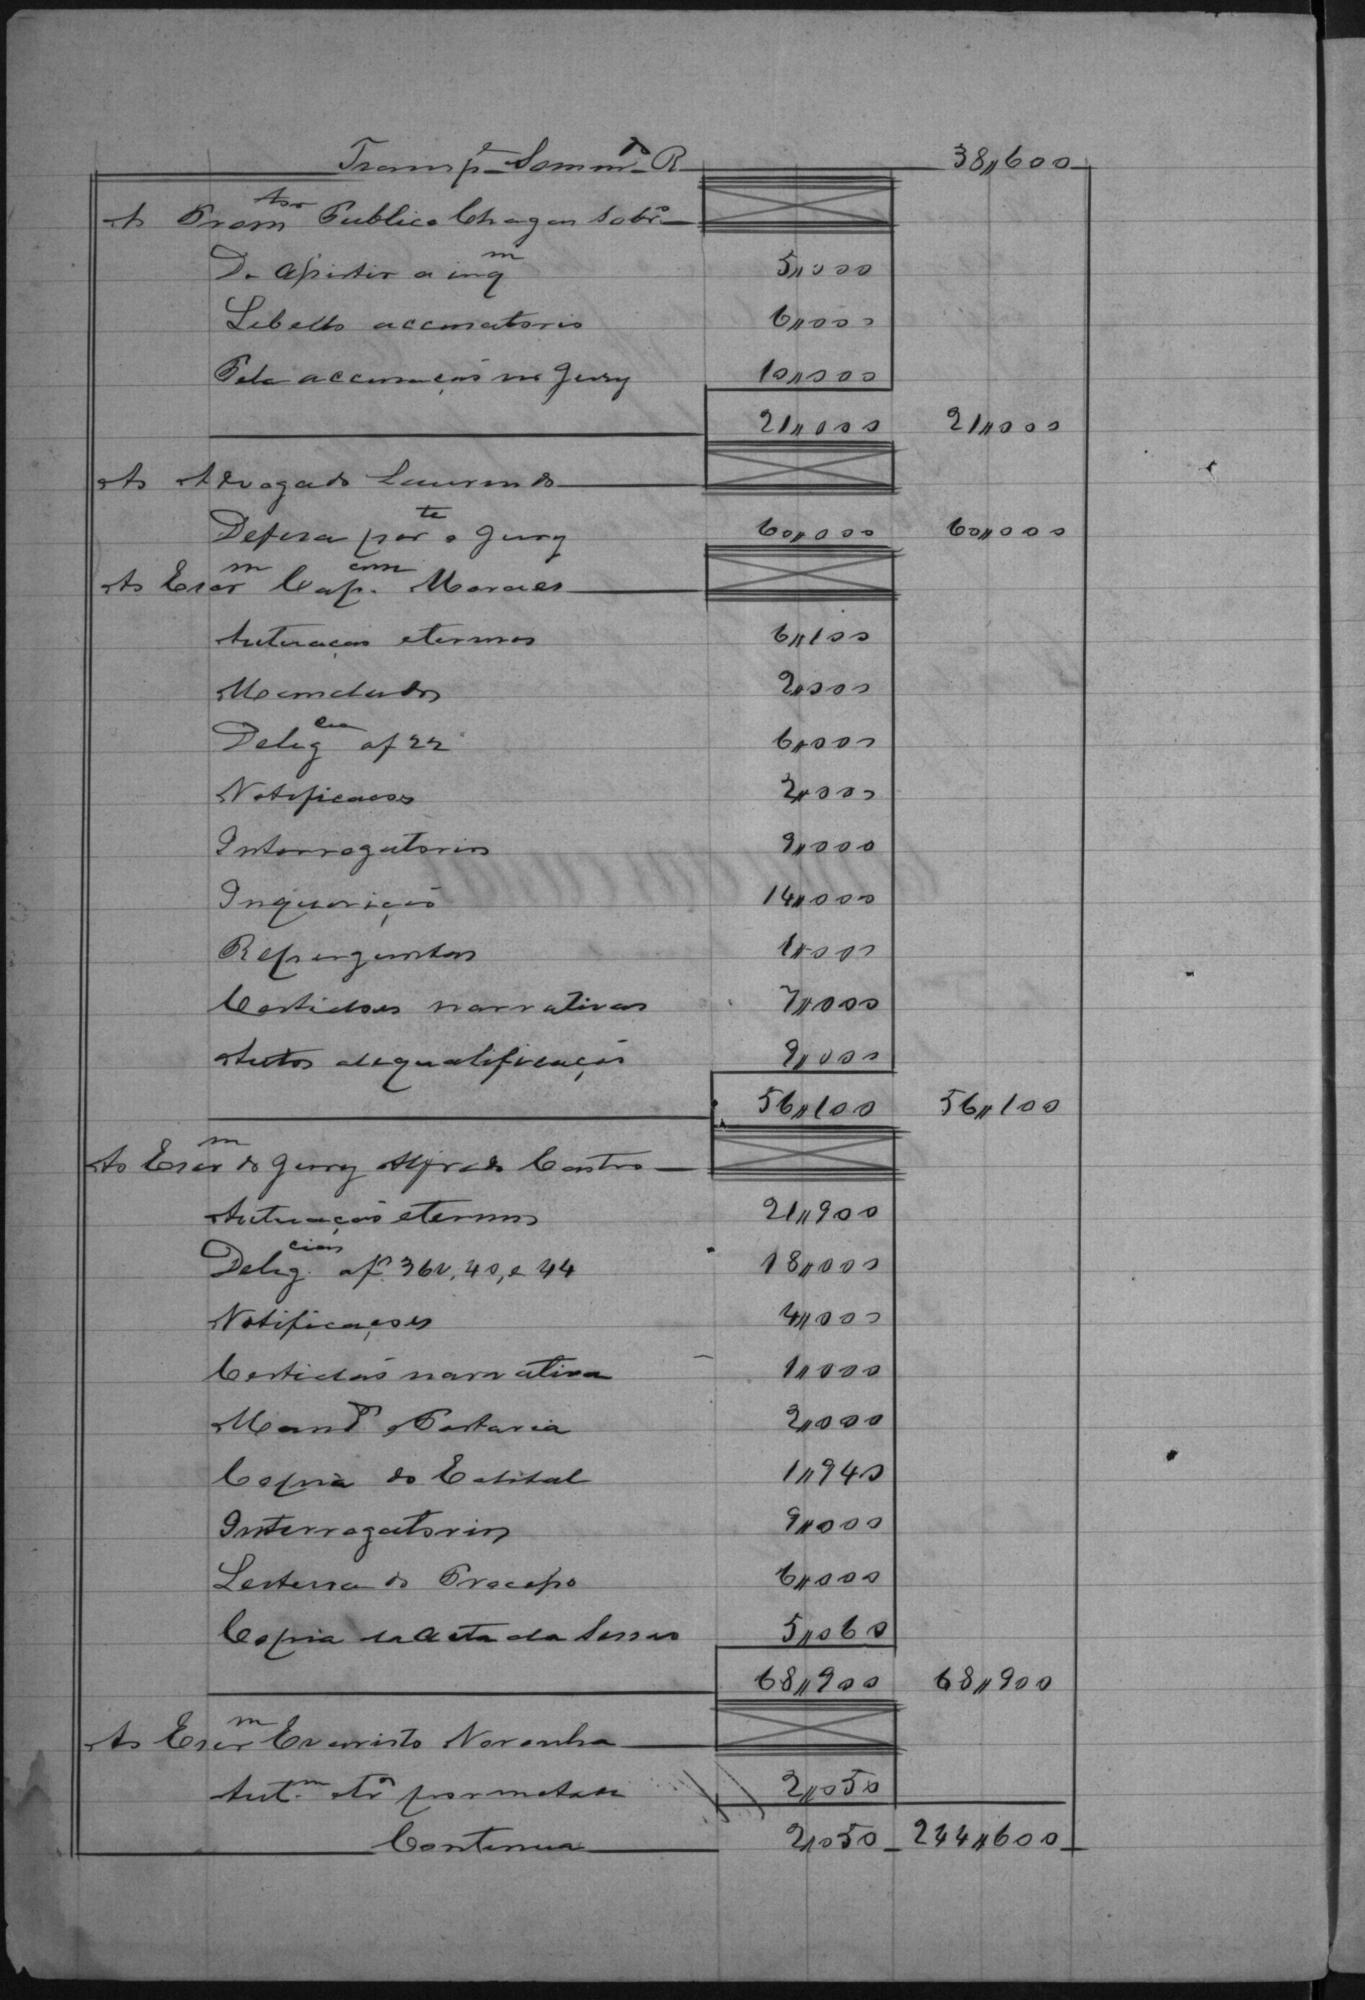 Transp.e Somm.a R 38,,600
Ao Promtor Publico Chagas Sobr.o
De assistir a inqm 5,,000
Libello accusatorio 6,,000
Pela accusação no Jury 10,,000
21,,000 21,,000
Ao Advogado Laurindo
Defesa perte o Jury 60,,000 60,,000
Ao Escrm Cap. Moraes
Autuação e termos 6,,100
Mandados 2,,000
Deligcia af 22 6,,000
Notificações 2,,000
Interrogatorios 9,,000
Inquirição 14,,000
Reperguntas 1,,000
Certidoes narrativas 7,,000
Autos de qualificação 9,,000
56,,100 56,,100
Ao Escrm do Jury Alfredo Castro
Autuação e termos 21,,900
Deligcias af. 36v, 40, e 44 18,,000
Notificações 4,,000
Certidão narrativa 1,,000
Mando e Portaria 2,,000
Copia do Edital 1,,940
Interrogatorios 9,,000
Leitura do Processo 6,,000
Copia da Acta da Sessão 5,,060
68,,900 68,,900
Ao Escrm Evaristo Noronha
Aut.m por metade 2,,050
Continua 2,,050 244,,600